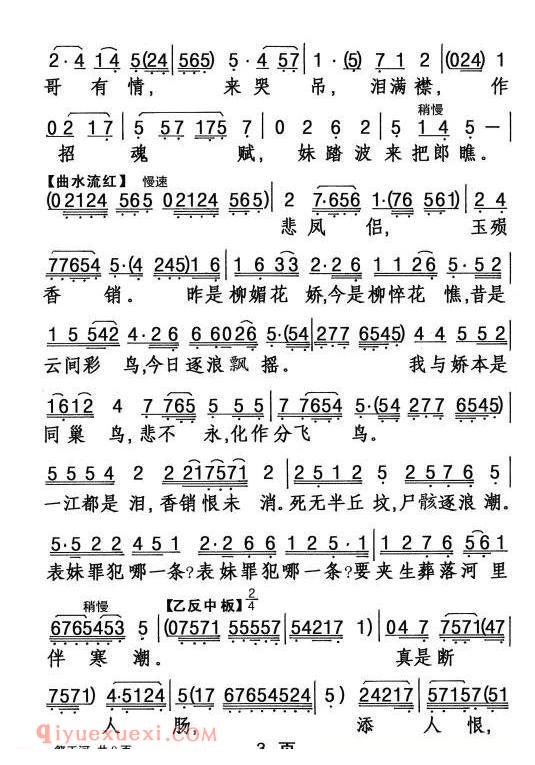 2·4 1 4 5(24 | 565) 5·4 57 | 1·(5) 7 1 2 | (024) 1
哥 有 情, 来 哭 吊, 泪 满 襟, 作
稍慢
02 17 | 5 57 175 7 | 0 2 6 2 | 5 1 4 5 —
招 魂 赋, 妹 踏 波 来 把 郎 瞧。
【曲水流红】 慢速
(02124 565 02124 565) | 2 7·656 | 1·(76 561) | 2 4
悲 凤 侣, 玉 殒
77654 5·(4 245) 1 6 | 1 6 3 3 2·3 2 6 1 1 6 1 2 | 5·5 5 1
香 销。 昨是柳媚花 娇,今是柳悴花 憔,昔是
1 5 542 4·2 6 6 6026 5·(54 | 277 6545) 4 4 5 5 2
云间彩 鸟,今日逐浪飘 摇。 我与娇本是
1612 4 7 765 5 5 5 | 7 7654 5·(54 277 6545) |
同巢 鸟,悲不 永,化作分飞 鸟。
5 5 5 4 2 2 217571 2 | 2 2 1 2 5 2 5 7 5 6 1 |
一江都是 泪,香销恨未 消。死无半丘 坟,尸骸逐浪 潮。
5·5 2 2 4 5 1 | 2·2 6 6 1 2 5·1 | 1 2 7 6 5 6 1 2
表妹罪犯哪一条?表妹罪犯哪一条?要夹生葬落河里
稍慢 【乙反中板】 2/4
67654553 5 | (07571 55557 | 54217 1) | 04 7 7571(47
伴 寒 潮。 真是断
7571) | 4·5124 | 5(17 67654524 | 5) | 24217 | 57157(51
人 肠, 添 人 恨,
qiyuexuexi.com
3 页